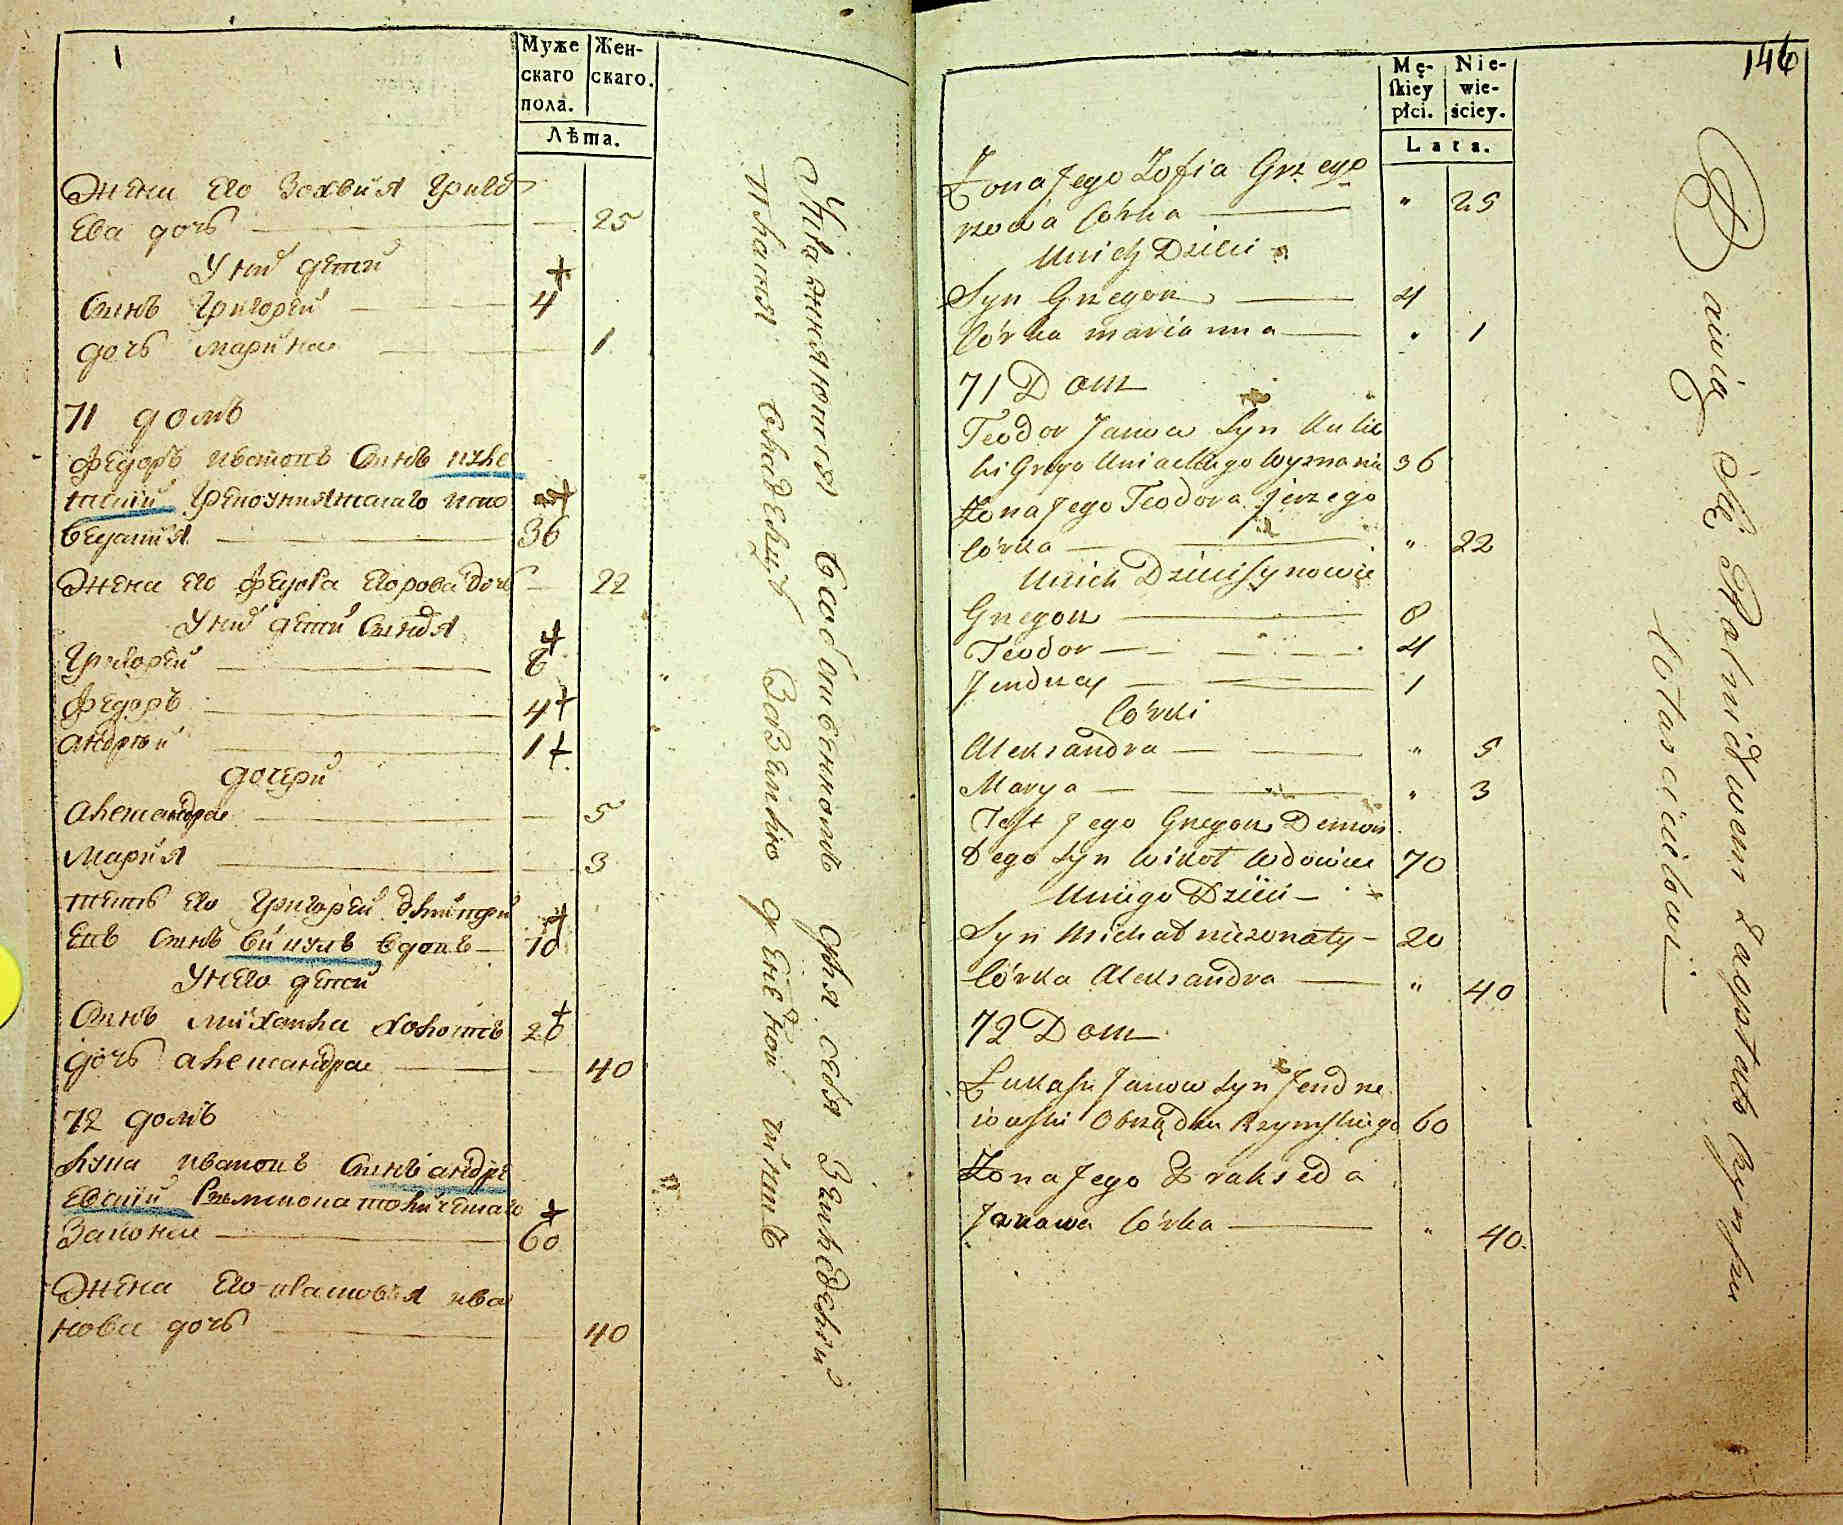 Муже
скаго
пола.
Жен-
скаго.
Лѣта.
Жена его Зохвия Григо
ева дочь 25
У них дети
Синъ Григорей 4
дочь Марина 1
71 домъ
Федоръ Ивановъ Синъ
Греко униятскаго испо
ведания 36
Жена его Федора Егорова дочь 22
У них дети Синовя
Григорей 8
Федоръ 4
Андрей 1
дочери
Александра 5
Мария 3
тесть его Григорей Дмитри
евъ Синъ Викулъ вдовъ 70
У него дети
Синъ Михайла холостъ 20
дочь Александра 40
72 домъ
Лука Ивановъ Синъ Андре
евский Римскокатолическаго
Закона 60
Жена его Ива
нова дочь 40
146
Mę-
skiey
płci.
Nie-
wie-
ściey.
Lata.
Zona Jego Zofia Grzego
rzowa Córka " 25
U nich Dzieci
Syn Grzegorz 4
Córka Marianna " 1
71 Dom
Teodor Janow Syn Kulic
ki Greko Uniackiego Wyznania 36
Zona Jego Teodora Jerzego
Córka " 22
U nich Dzieci Synowie
Grzegorz 8
Teodor 4
Jendrzey 1
Córki
Aleksandra " 5
Marya " 3
Test Jego Grzegorz
Syn Wikoł Wdowiec 70
U niego Dzieci
Syn Michał niezonaty 20
Córka Aleksandra " 40
72 Dom
Łukasz Janow Syn Jendrze
iowski Obrządku Rzymskiego 60
Zona Jego Prakseda
Janowa Córka " 40